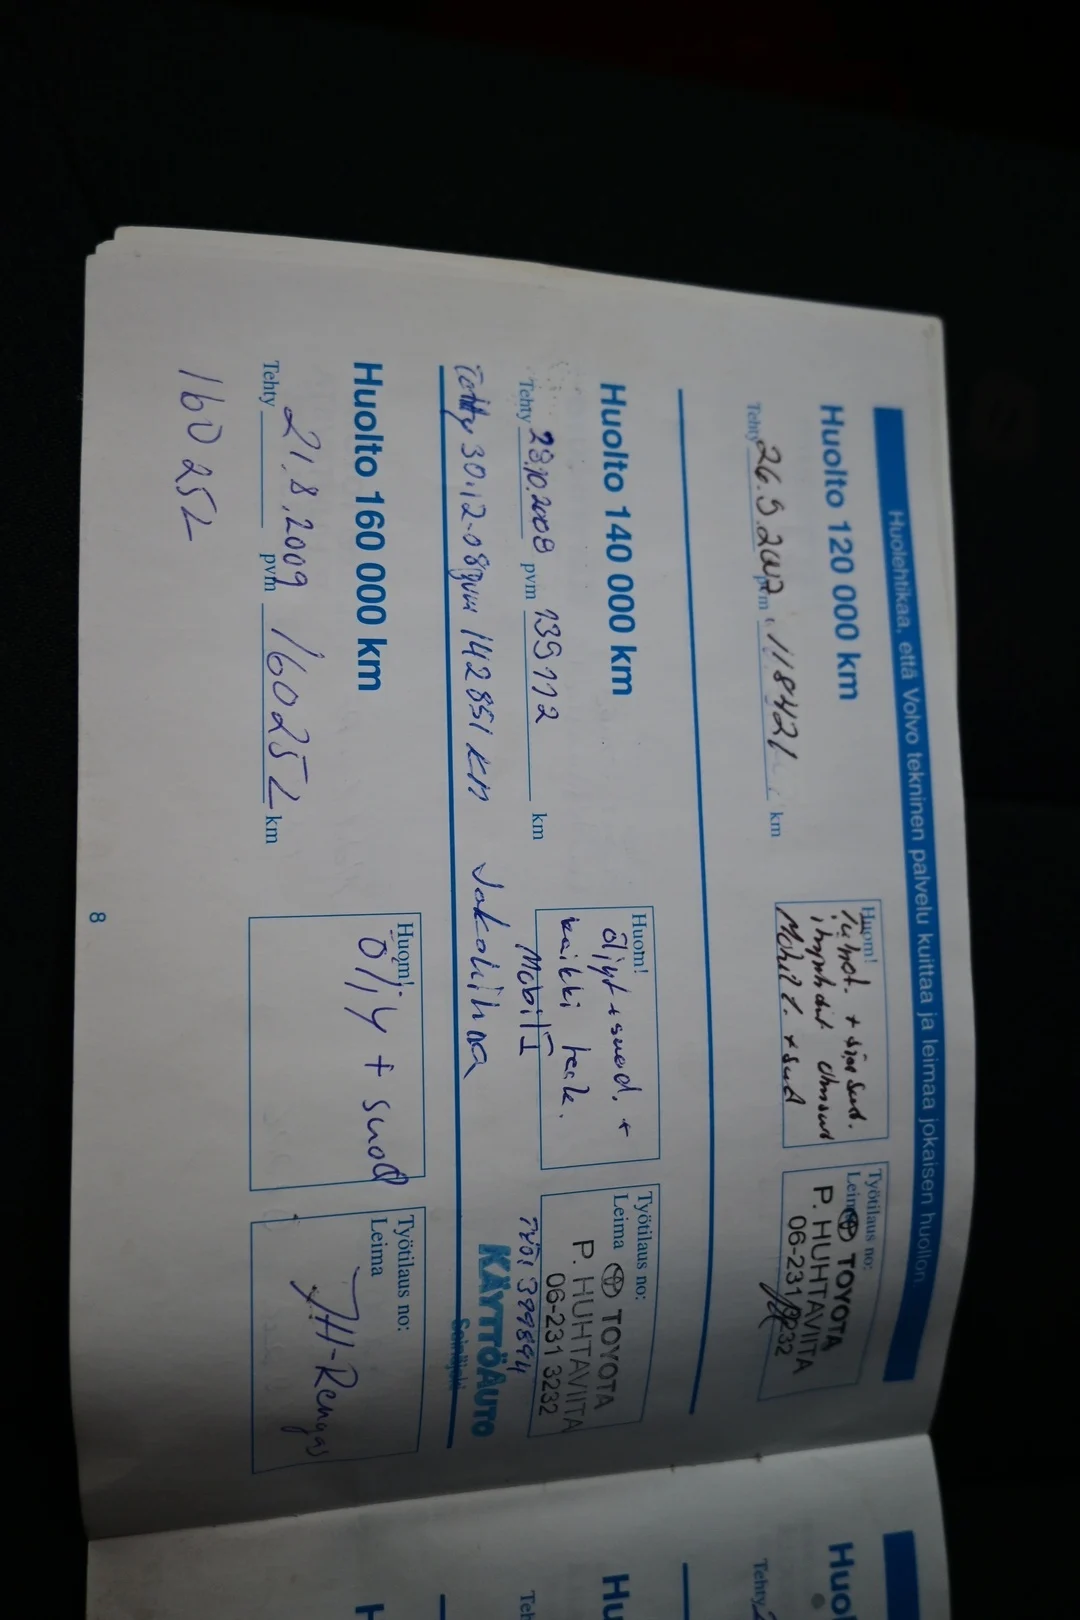 Huolehtikaa, että Volvo tekninen palvelu kuittaa ja leimaa jokaisen huollon.
Huolto 120 000 km
Tehty 26.9.2007 pvm 118421 km
Huom!
+ suod.
Mobil 1. + suod
Työtilaus no:
Leima TOYOTA
P. HUHTAVIITA
06-231 3232
Huolto 140 000 km
Tehty 23.10.2008 pvm 139112 km
Huom!
öljyt + suod. +
kaikki
Mobil 1
Työtilaus no:
Leima TOYOTA
P. HUHTAVIITA
06-231 3232
Työ: 399894
Tehty 30.12-08 pvm 142851 km Jakohihna
KÄYTTÖAUTO
Seinäjoki
Huolto 160 000 km
Tehty 21.8.2009 pvm 160252 km
160252
Huom!
Öljy + suod
Työtilaus no:
Leima
JH-Rengas
8
Huol
Tehty
Hu
Teh
H